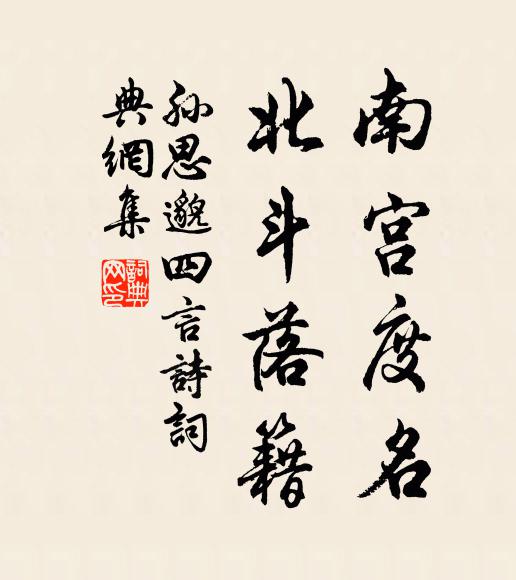 南宫度名
北斗落籍
孙思邈四言詩詞
典網集
詞典
网印